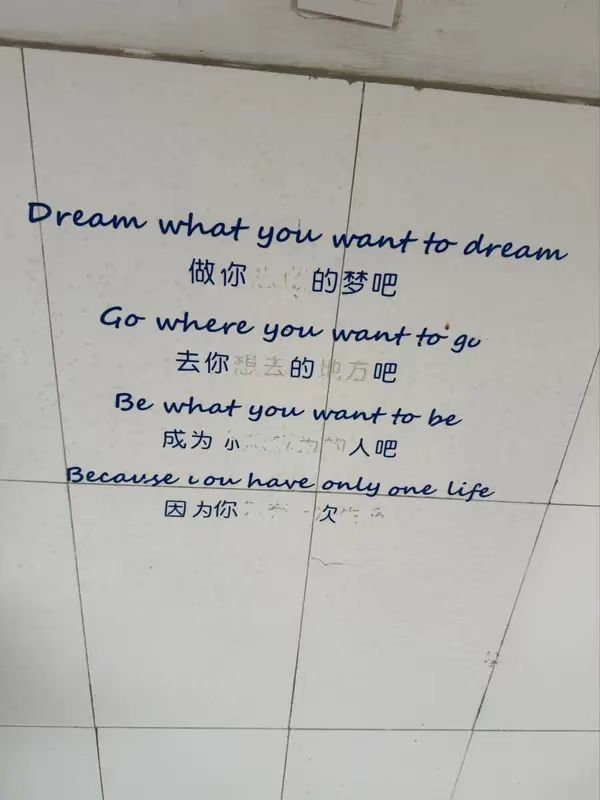 Dream what you want to dream
做你的梦吧
Go where you want to go
去你想去的地方吧
Be what you want to be
成为人吧
Because you have only one life
因为你次